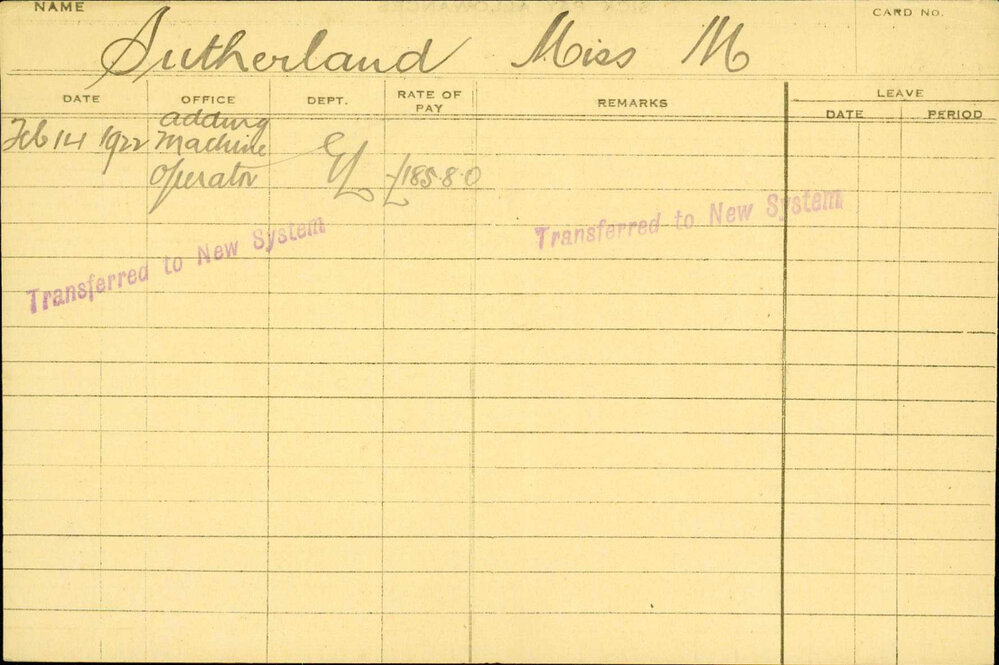 NAME
CARD NO.
Sutherland Miss M
DATE OFFICE DEPT. RATE OF PAY REMARKS LEAVE
DATE PERIOD
Feb 14 1922 adding Machine operator EL £185.8.0
Transferred to New System
Transferred to New System